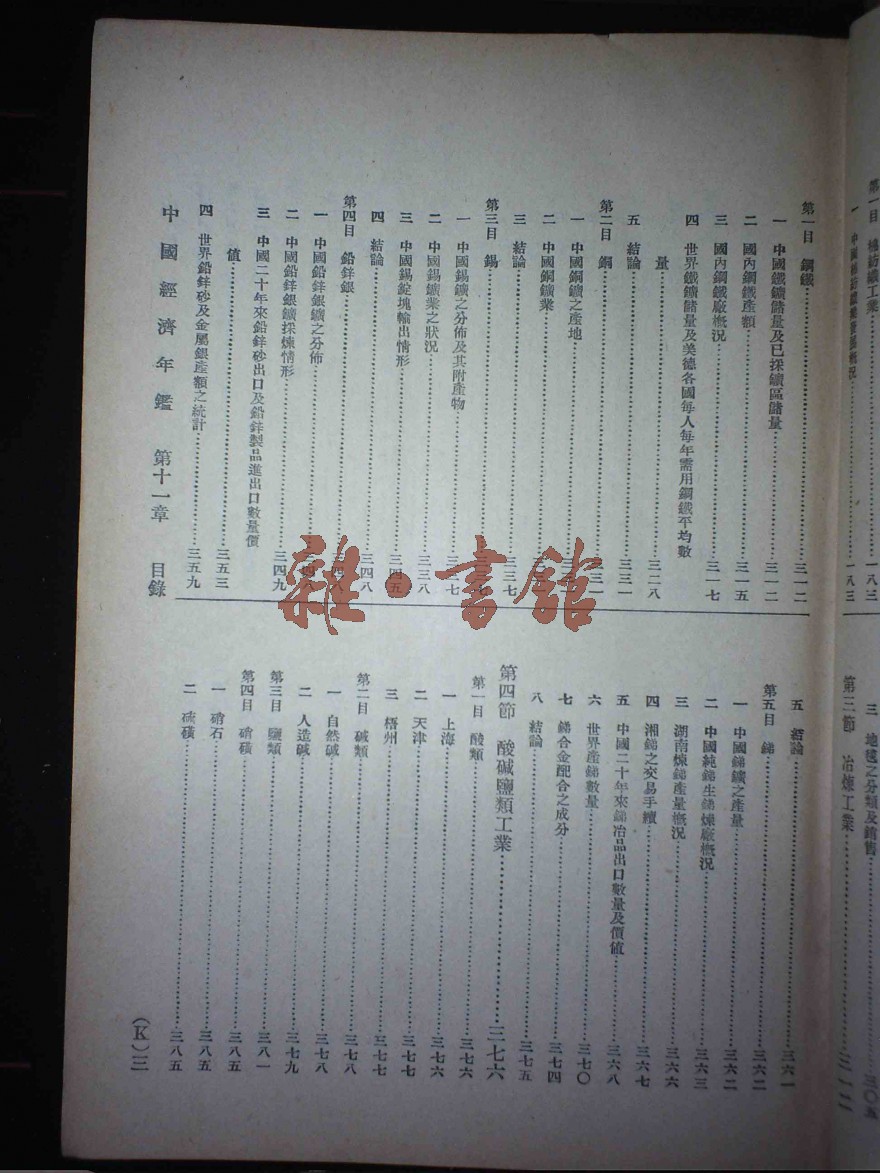 第一目 鋼鐵……三一二
一 中國鐵鑛儲量及已採鑛區儲量……三一二
二 國內鋼鐵產額……三一五
三 國內鋼鐵廠概況……三一七
四 世界鐵鑛儲量及美德各國每人每年需用鋼鐵平均數
量……三二八
五 結論……三三一
第二目 銅
一 中國銅鑛之產地
二 中國銅鑛業
三 結論……三三七
第三目 錫
一 中國錫鑛之分佈及其附產物……三三七
二 中國錫鑛業之狀況……三三八
三 中國錫錠塊輸出情形……三四五
四 結論……三四八
第四目 鉛鋅銀……三四八
一 中國鉛鋅銀鑛之分佈……三四八
二 中國鉛鋅銀鑛採煉情形……三四九
三 中國二十年來鉛鋅砂出口及鉛鋅製品進出口數量價
值……三五三
四 世界鉛鋅砂及金屬銀產額之統計……三五九
中國經濟年鑑 第十一章 目錄
五 結論……三六一
第五目 銻……三六二
一 中國銻鑛之產量……三六二
二 中國純銻生銻煉廠概況……三六三
三 湖南煉銻產量概況……三六六
四 湘銻之交易手續……三六七
五 中國二十年來銻冶品出口數量及價值……三六八
六 世界產銻數量……三七〇
七 銻合金配合之成分……三七四
八 結論……三七五
第四節 酸碱鹽類工業……三七六
第一目 酸類……三七六
一 上海……三七六
二 天津……三七七
三 梧州……三七七
第二目 碱類……三七八
一 自然碱……三七八
二 人造碱……三七九
第三目 鹽類……三八一
第四目 硝磺……三八五
一 硝石……三八五
二 硫磺……三八五
(K)三
第一目 棉紡織工業……一八三
一八三
三 地毯之分類及銷售……三〇五
第三節 冶煉工業……三一二
雜·書館